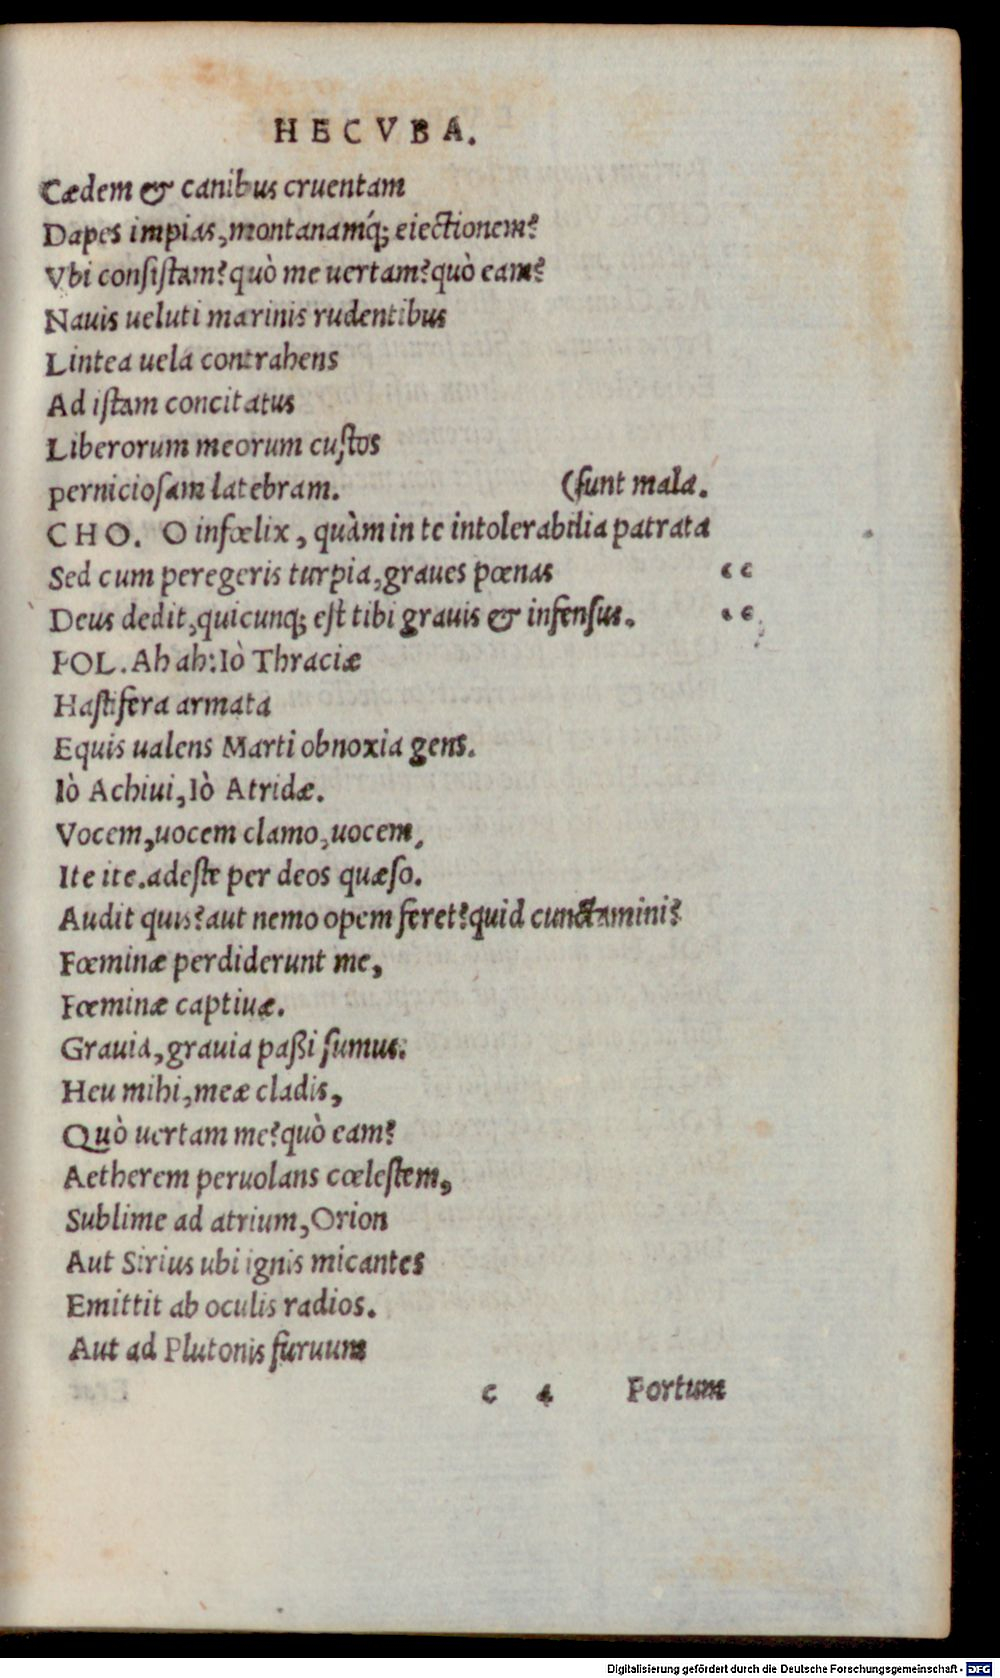 HECVBA.
Cædem & canibus cruentam
Dapes impias, montanamq́; eiectionem?
Vbi consistam? quò me uertam? quò eam?
Nauis ueluti marinis rudentibus
Lintea uela contrahens
Ad istam concitatus
Liberorum meorum custos
perniciosam latebram. (sunt mala.
CHO. O infœlix, quàm in te intolerabilia patrata
Sed cum peregeris turpia, graues pœnas “
Deus dedit, quicunq; est tibi grauis & infensus. “
POL. Ah ah: Iò Thraciæ
Hastifera armata
Equis ualens Marti obnoxia gens.
Iò Achiui, Iò Atridæ.
Vocem, uocem clamo, uocem,
Ite ite. adeste per deos quæso.
Audit quis? aut nemo opem feret? quid cunctamini?
Fœminæ perdiderunt me,
Fœminæ captiuæ.
Grauia, grauia paßi sumus:
Heu mihi, meæ cladis,
Quò uertam me? quò eam?
Aetherem peruolans cœlestem,
Sublime ad atrium, Orion
Aut Sirius ubi ignis micantes
Emittit ab oculis radios.
Aut ad Plutonis furuum
c 4 Portum
Digitalisierung gefördert durch die Deutsche Forschungsgemeinschaft - DFG